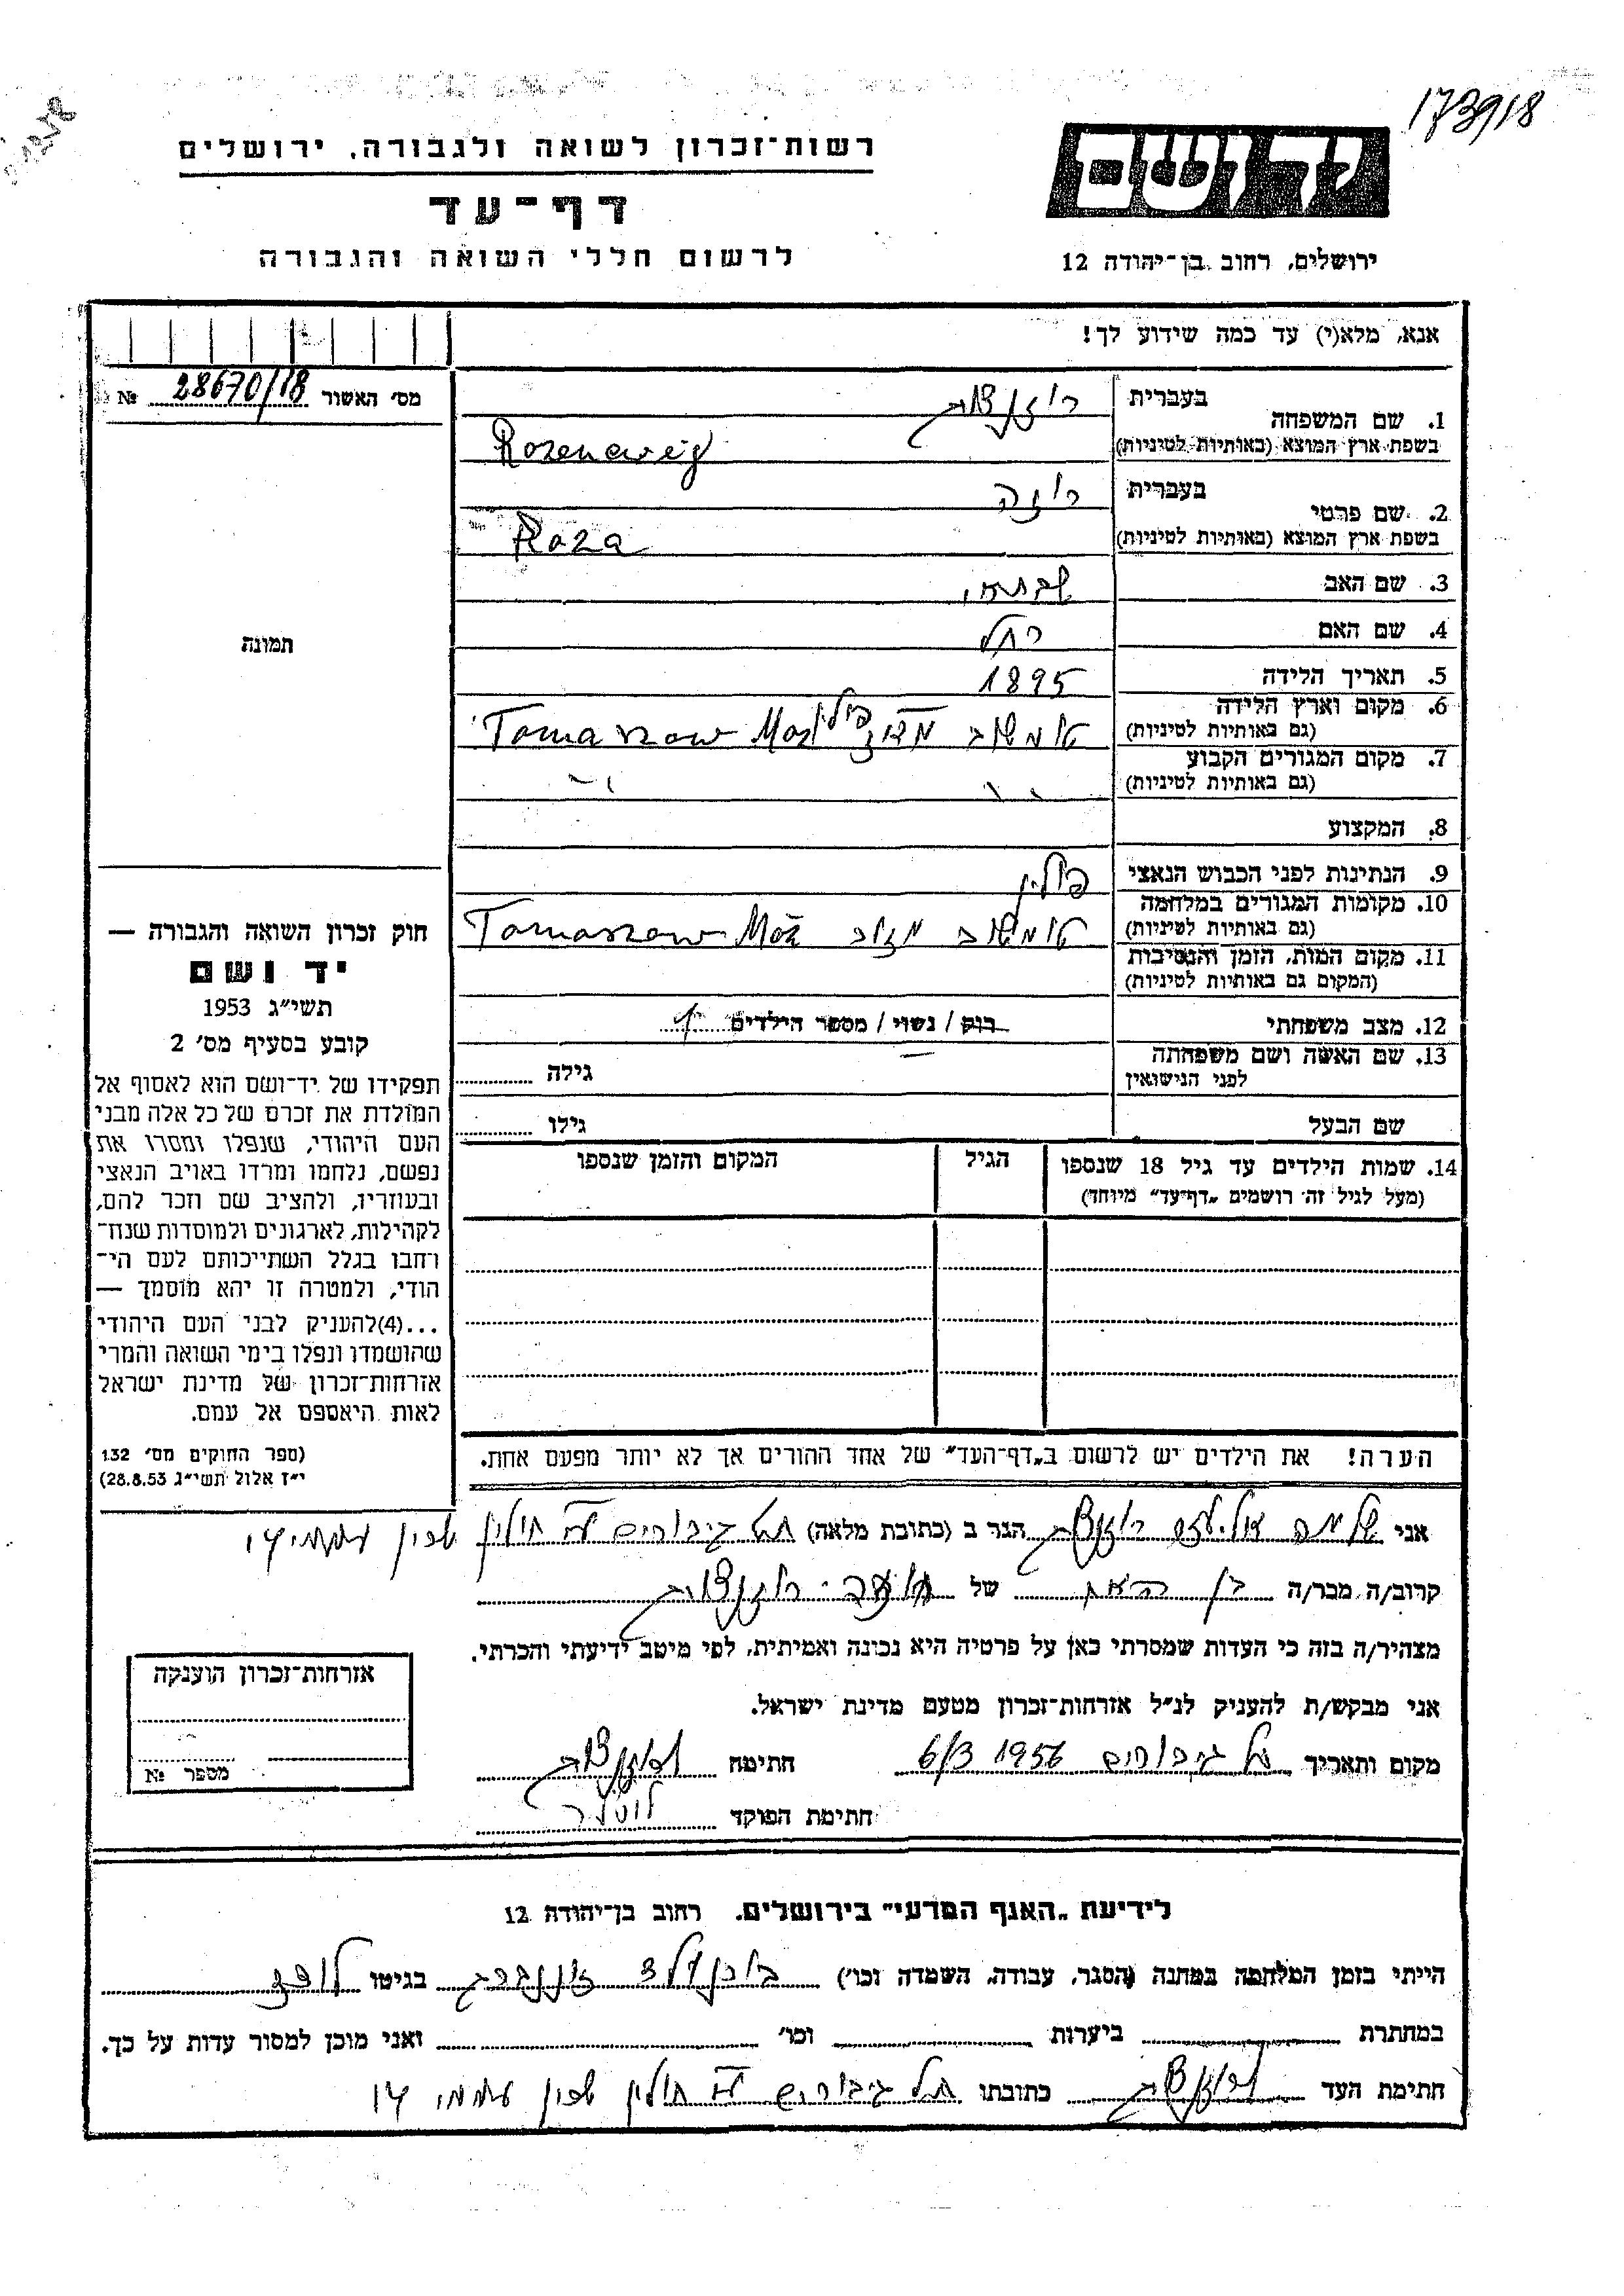 173918
רשות־זכרון לשואה ולגבורה, ירושלים
ידושם
דף־עד
לרשום חללי השואה והגבורה
ירושלים, רחוב בן־יהודה 12
אנא, מלא(י) עד כמה שידוע לך!
מס׳ האשור № 28670/18
1. שם המשפחה
בעברית רוזנצויג
בשפת ארץ המוצא (באותיות לטיניות) Rozencweig
2. שם פרטי
בעברית רוזה
בשפת ארץ המוצא (באותיות לטיניות) Roza
3. שם האב שבתאי
4. שם האם רחל
5. תאריך הלידה 1895
6. מקום וארץ הלידה
(גם באותיות לטיניות) טומשוב מזוב פולין Tomaszow Maz
7. מקום המגורים הקבוע
(גם באותיות לטיניות) " "
8. המקצוע
9. הנתינות לפני הכבוש הנאצי פולין
10. מקומות המגורים במלחמה
(גם באותיות לטיניות) טומשוב מזוב Tomaszow Maz
11. מקום המות, הזמן והנסיבות
(המקום גם באותיות לטיניות)
12. מצב משפחתי רוק / נשוי / מספר הילדים
13. שם האשה ושם משפחתה
לפני הנישואין
גילה
שם הבעל
גילו
תמונה
14. שמות הילדים עד גיל 18 שנספו
(מעל לגיל זה רושמים „דף־עד" מיוחד)
הגיל
המקום והזמן שנספו
חוק זכרון השואה והגבורה —
יד ושם
תשי״ג 1953
קובע בסעיף מס׳ 2
תפקידו של יד־ושם הוא לאסוף אל
המולדת את זכרם של כל אלה מבני
העם היהודי, שנפלו ומסרו את
נפשם, נלחמו ומרדו באויב הנאצי
ובעוזריו, ולהציב שם וזכר להם,
לקהילות, לארגונים ולמוסדות שנח־
רחבו בגלל השתייכותם לעם הי־
הודי, ולמטרה זו יהא מוסמך —
...(4)להעניק לבני העם היהודי
שהושמדו ונפלו בימי השואה והמרי
אזרחות־זכרון של מדינת ישראל
לאות היאספם אל עמם.
(ספר החוקים מס׳ 132
י״ז אלול תשי״ג 28.8.53)
הערה! את הילדים יש לרשום ב„דף־העד" של אחד ההורים אך לא יותר מפעם אחת.
אני שלמה אליעזר רוזנצויג הגר ב (כתובת מלאה) תל גיבורים ע״י חולין שכון עממי 14
קרוב/ה מכר/ה בן האח של רוזנצויג
מצהיר/ה בזה כי העדות שמסרתי כאן על פרטיה היא נכונה ואמיתית, לפי מיטב ידיעתי והכרתי.
אני מבקש/ת להעניק לנ״ל אזרחות־זכרון מטעם מדינת ישראל.
מקום ותאריך תל גיבורים 6/3 1956 חתימה רוזנצויג
חתימת הפוקד
אזרחות־זכרון הוענקה
מספר №
לידיעת „האגף המדעי" בירושלים. רחוב בן־יהודה 12
הייתי בזמן המלחמה במחנה (הסגר, עבודה, השמדה וכו׳) בוכנולד בגיטו לודז
במחתרת ביערות וכו׳ ואני מוכן למסור עדות על כך.
חתימת העד רוזנצויג כתובתו תל גיבורים ע״י חולין שכון עממי 14